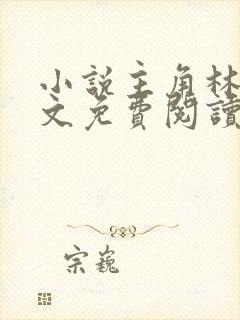 小说主角林
文免費閱讀
宗巍